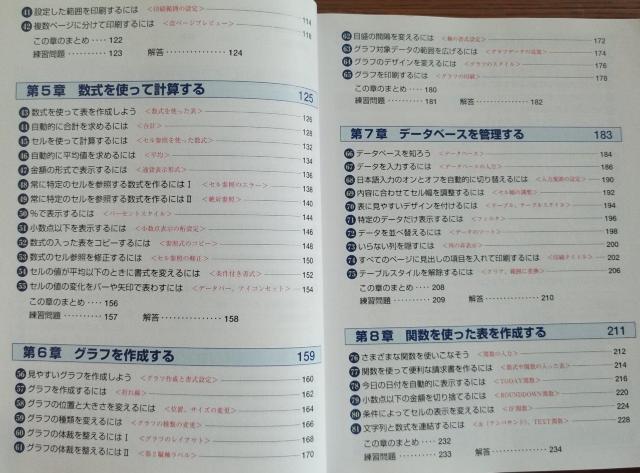 41 設定した範囲を印刷するには <印刷範囲の設定> 114
42 複数ページに分けて印刷するには <改ページプレビュー> 116
この章のまとめ・・・・122
練習問題・・・・・・・・・123 解答・・・・・・・・・・124
第5章 数式を使って計算する 125
43 数式を使って表を作成しよう <数式を使った表> 126
44 自動的に合計を求めるには <合計> 128
45 セルを使って計算するには <セル参照を使った数式> 132
46 自動的に平均値を求めるには <平均> 134
47 金額の形式で表示するには <通貨表示形式> 136
48 常に特定のセルを参照する数式を作るにはⅠ <セル参照のエラー> 138
49 常に特定のセルを参照する数式を作るにはⅡ <絶対参照> 140
50 %で表示するには <パーセントスタイル> 144
51 小数点以下を表示するには <小数点表示の桁設定> 146
52 数式の入った表をコピーするには <数式のコピー> 148
53 数式のセル参照を修正するには <セル参照の修正> 150
54 セルの値が平均以下のときに書式を変えるには <条件付き書式> 152
55 セルの値の変化をバーや矢印で表わすには <データバー、アイコンセット> 154
この章のまとめ・・・・156
練習問題・・・・・・・・・157 解答・・・・・・・・・・158
第6章 グラフを作成する 159
56 見やすいグラフを作成しよう <グラフ作成と書式設定> 160
57 グラフを作成するには <折れ線> 162
58 グラフの位置と大きさを変えるには <位置、サイズの変更> 164
59 グラフの種類を変えるには <グラフの種類の変更> 166
60 グラフの体裁を整えるにはⅠ <グラフのレイアウト> 168
61 グラフの体裁を整えるにはⅡ <第2縦軸ラベル> 170
62 目盛の間隔を変えるには <軸の書式設定> 172
63 グラフ対象データの範囲を広げるには <グラフデータの範囲> 174
64 グラフのデザインを変えるには <グラフのスタイル> 176
65 グラフを印刷するには <グラフの印刷> 178
この章のまとめ・・・・180
練習問題・・・・・・・・・181 解答・・・・・・・・・・182
第7章 データベースを管理する 183
66 データベースを知ろう <データベース> 184
67 データを入力するには <データベースの入力> 186
68 日本語入力のオンとオフを自動的に切り替えるには <入力規則の設定> 190
69 内容に合わせてセル幅を調整するには <セル幅の調整> 192
70 表に見やすいデザインを付けるには <テーブル、テーブルスタイル> 194
71 特定のデータだけ表示するには <フィルタ> 196
72 データを並べ替えるには <データのソート> 198
73 いらない列を隠すには <列の非表示> 200
74 すべてのページに見出しの項目を入れて印刷するには <印刷タイトル> 202
75 テーブルスタイルを解除するには <クリア、範囲に変換> 206
この章のまとめ・・・・208
練習問題・・・・・・・・・209 解答・・・・・・・・・・210
第8章 関数を使った表を作成する 211
76 さまざまな関数を使いこなそう <関数の入力> 212
77 関数を使って便利な請求書を作るには <数式や関数の入った表> 214
78 今日の日付を自動的に表示するには <TODAY関数> 216
79 小数点以下の金額を切り捨てるには <ROUNDDOWN関数> 220
80 条件によってセルの表示を変えるには <IF関数> 224
81 文字列と数式を連結するには <&(アンパサンド)、TEXT関数> 228
この章のまとめ・・・・232
練習問題・・・・・・・・・233 解答・・・・・・・・・・234